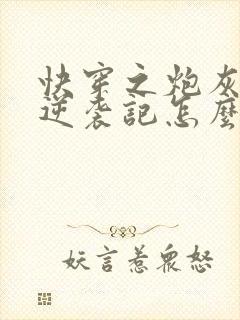 快穿之炮灰
逆袭記怎麼
妖言惹眾怒